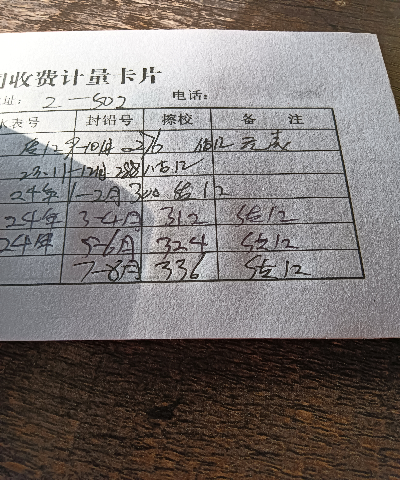 收费计量卡片
址: 2-502 电话:
水表号 封铅号 擦校 备 注
9-10月 276 估12
23.11-12月 288 估12
24年 1-2月 300 估12
24年 3-4月 312 估12
24年 5-6月 324 估12
7-8月 336 估12